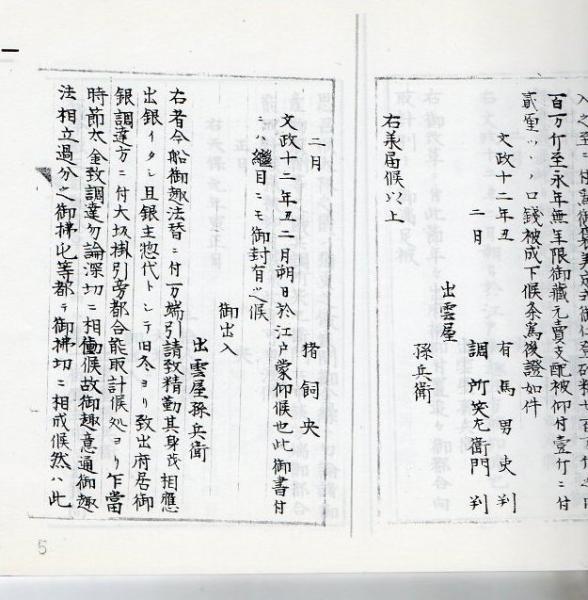 百万斤至永年無年限御藏元賣支配被仰付壹斤ニ付
貳厘ツヽ口錢被成下候条為後證如件
文政十二年丑
二月
有馬男吏判
調所笑左衛門判
出雲屋
孫兵衛
右義届候以上
二月
猪飼央
文政十二年丑二月朔日於江戸蒙仰候也此御書付
ニハ繼目ニモ御封有之候
御出入
出雲屋孫兵衛
右者今般御趣法替ニ付万端引請致精勤其身茂相應
出銀イタシ且銀主惣代トシテ旧冬ヨリ致出府居御
銀調達方ニ付大坂掛引旁都合能取計候処ヨリ乍當
時節大金致調達勿論深切ニ相働候故御趣意通御趣
法相立過分之御拂此等都テ御拂切ニ相成候然ハ此
5